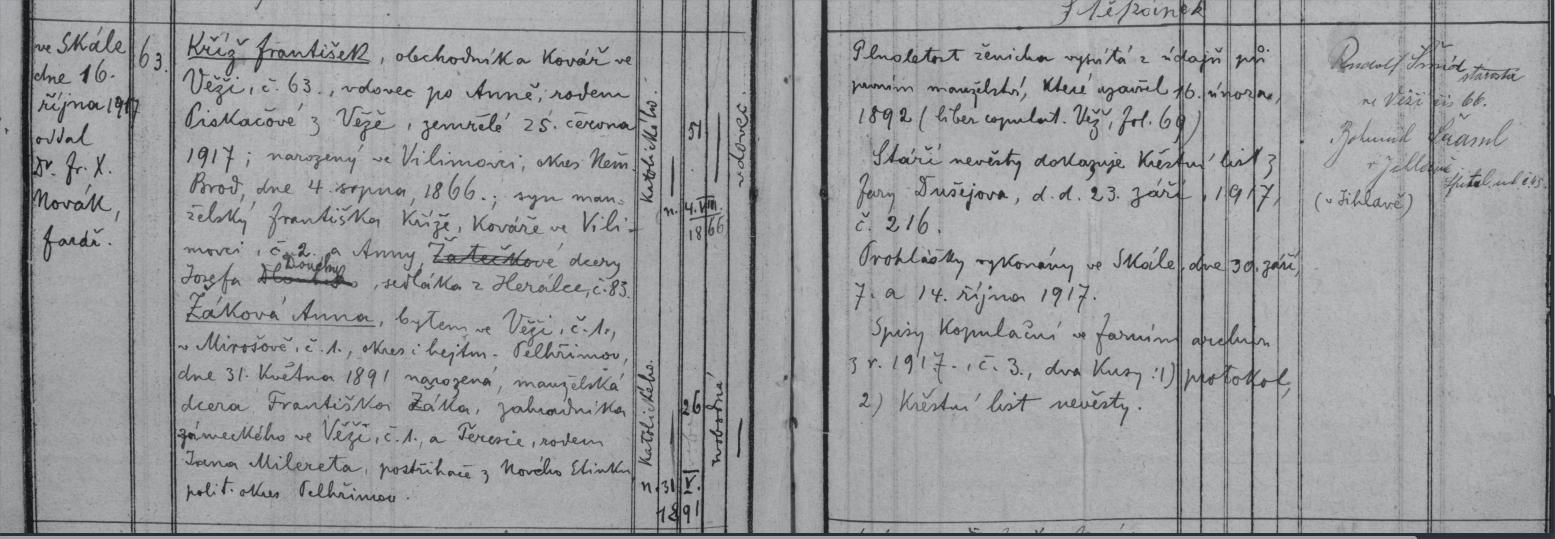 Štěpánek
ve Skále
dne 16.
října 1917
oddal
Dr. Fr. X.
Novák,
farář.
63.
Kříž František, obchodníka Kovář ve
Věži, č. 63., vdovec po Anně, rodem
Piskačové z Věže, zemřelé 25. června
1917; narozený ve Vilimovci, okres Něm.
Brod, dne 4. srpna, 1866.; syn man-
želský Františka Kříže, Kováře ve Vili-
movci, č. 2. a Anny, Žatečkové dcery
Josefa Douchy, sedláka z Herálce, č. 83.
Žáková Anna, bytem ve Věži, č. 1.,
v Mirošově, č. 1., okres i hejtm. Pelhřimov,
dne 31. Května 1891 narozená, manželská
dcera Františka Žáka, zahradníka
zámeckého ve Věži, č. 1., a Terezie, rodem
Jana Milereta, postřihače z Nového
polit. okres Pelhřimov.
Katolického.
51
n. 4. VIII.
18 66
vdovec.
Katolického.
26
n. 31 V.
18 91
svobodná
Plnoletost ženicha vysvítá z údajů při
prvním manželství, Které uzavřel 16. února,
1892 (liber copulat. Věž, fol. 69)
Stáří nevěsty dokazuje Křestní list z
fary Dušejova, d. d. 23. září, 1917,
č. 216.
Prohlášky vykonány ve Skále, dne 30. září,
7. a 14. října 1917.
Spisy Kopulační ve farním archivu
z r. 1917., č. 3., dva Kusy: 1) protokol,
2) Křestní list nevěsty.
Rudolf Šmíd
starosta
ve Věži čís 66.
Bohumil
v Jihlavě
(v Jihlavě)